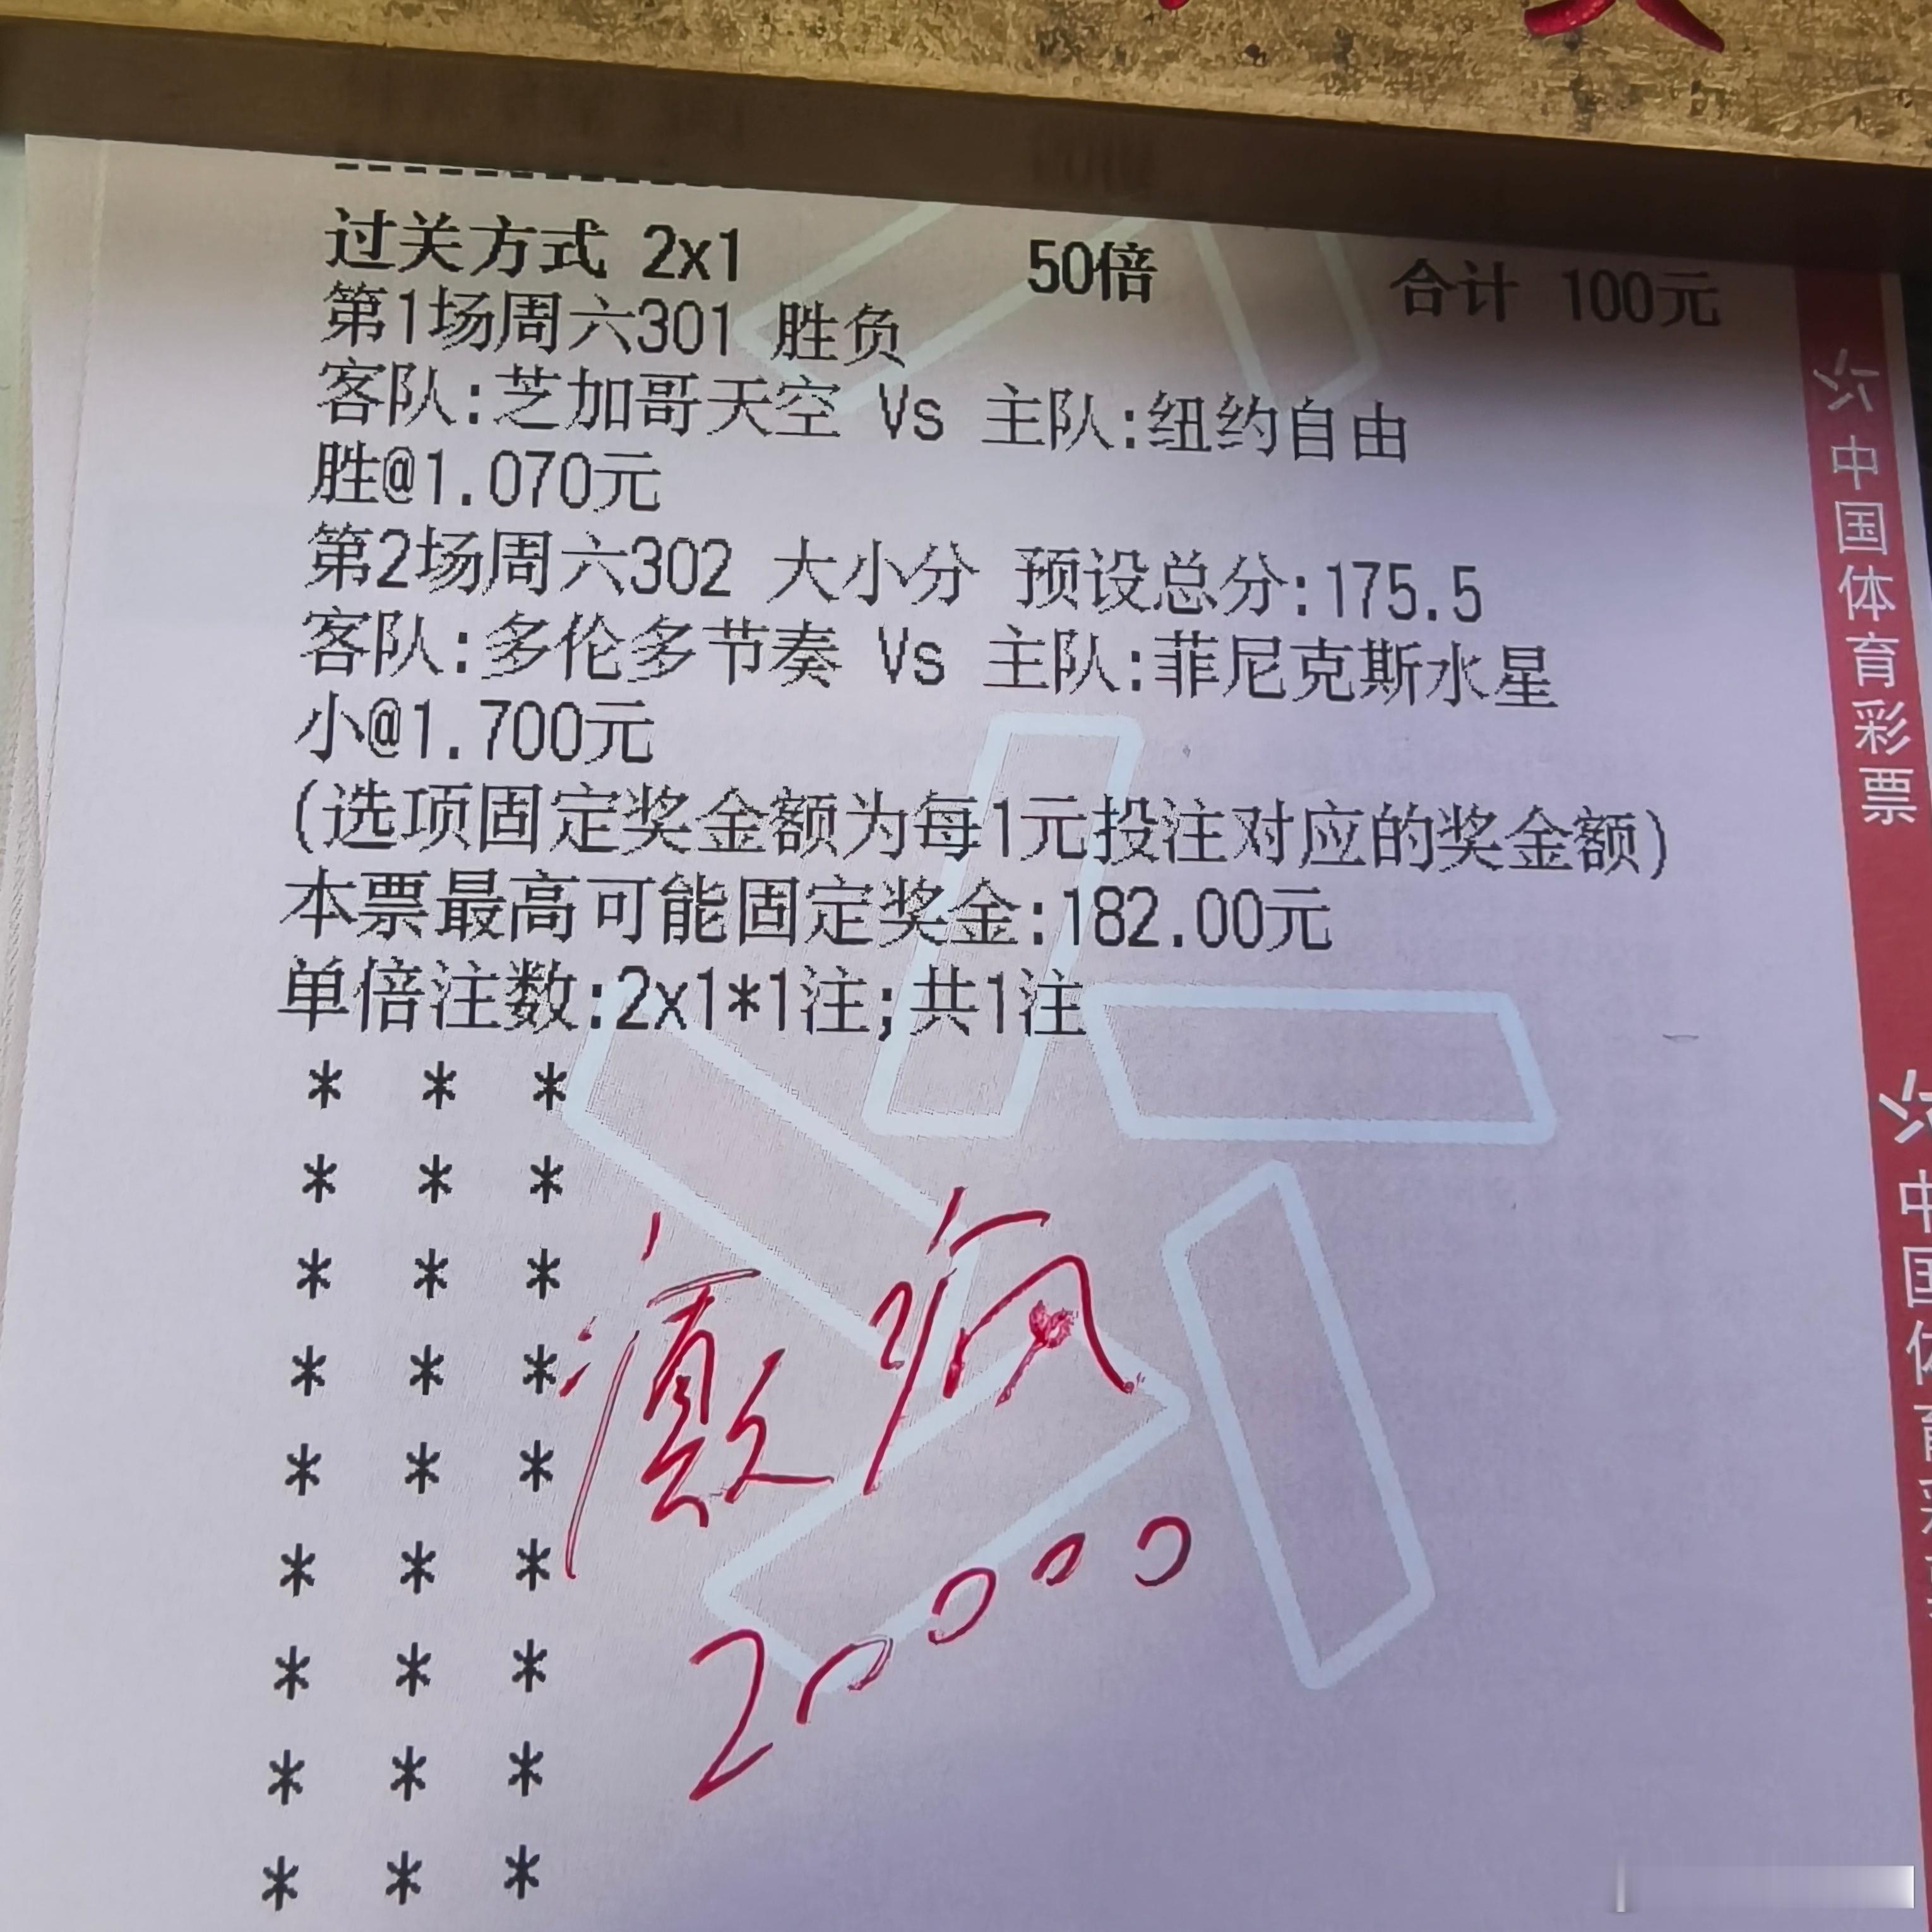 过关方式 2x1 50倍 合计 100元
第1场周六301 胜负
客队:芝加哥天空 Vs 主队:纽约自由
胜@1.070元
第2场周六302 大小分 预设总分:175.5
客队:多伦多节奏 Vs 主队:菲尼克斯水星
小@1.700元
(选项固定奖金额为每1元投注对应的奖金额)
本票最高可能固定奖金:182.00元
单倍注数:2x1*1注;共1注
* * *
* * *
* * *
* * *
* * *
* * *
* * *
* * *
* * *
20000
中国体育彩票
中国体育彩